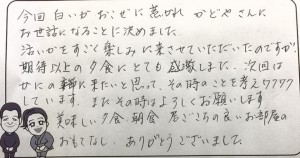 今回 白いかがおこぜに惹かれ かどやさんに
お世話になることに決めました。
活いかをすごく楽しみに来させていただいたのですが
期待以上の夕食にとても感激しました。次回は
かにの季節に来たいと思って、その時のことを考えワクワク
しています。またその時はよろしくお願いします
美味しい夕食、朝食 居ごこちの良いお部屋の
おもてなし、ありがとうございました。